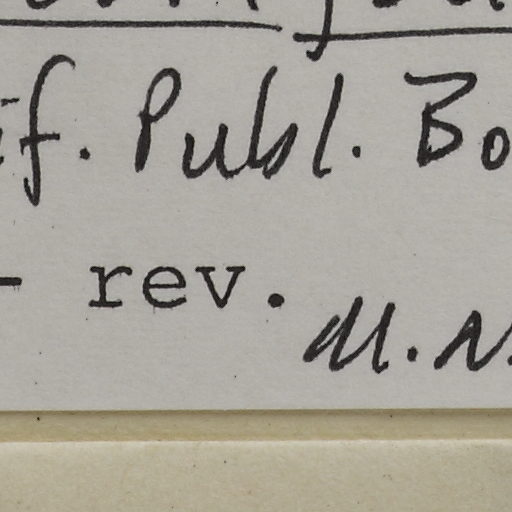 if. Publ. Bo
- rev.
M. N.